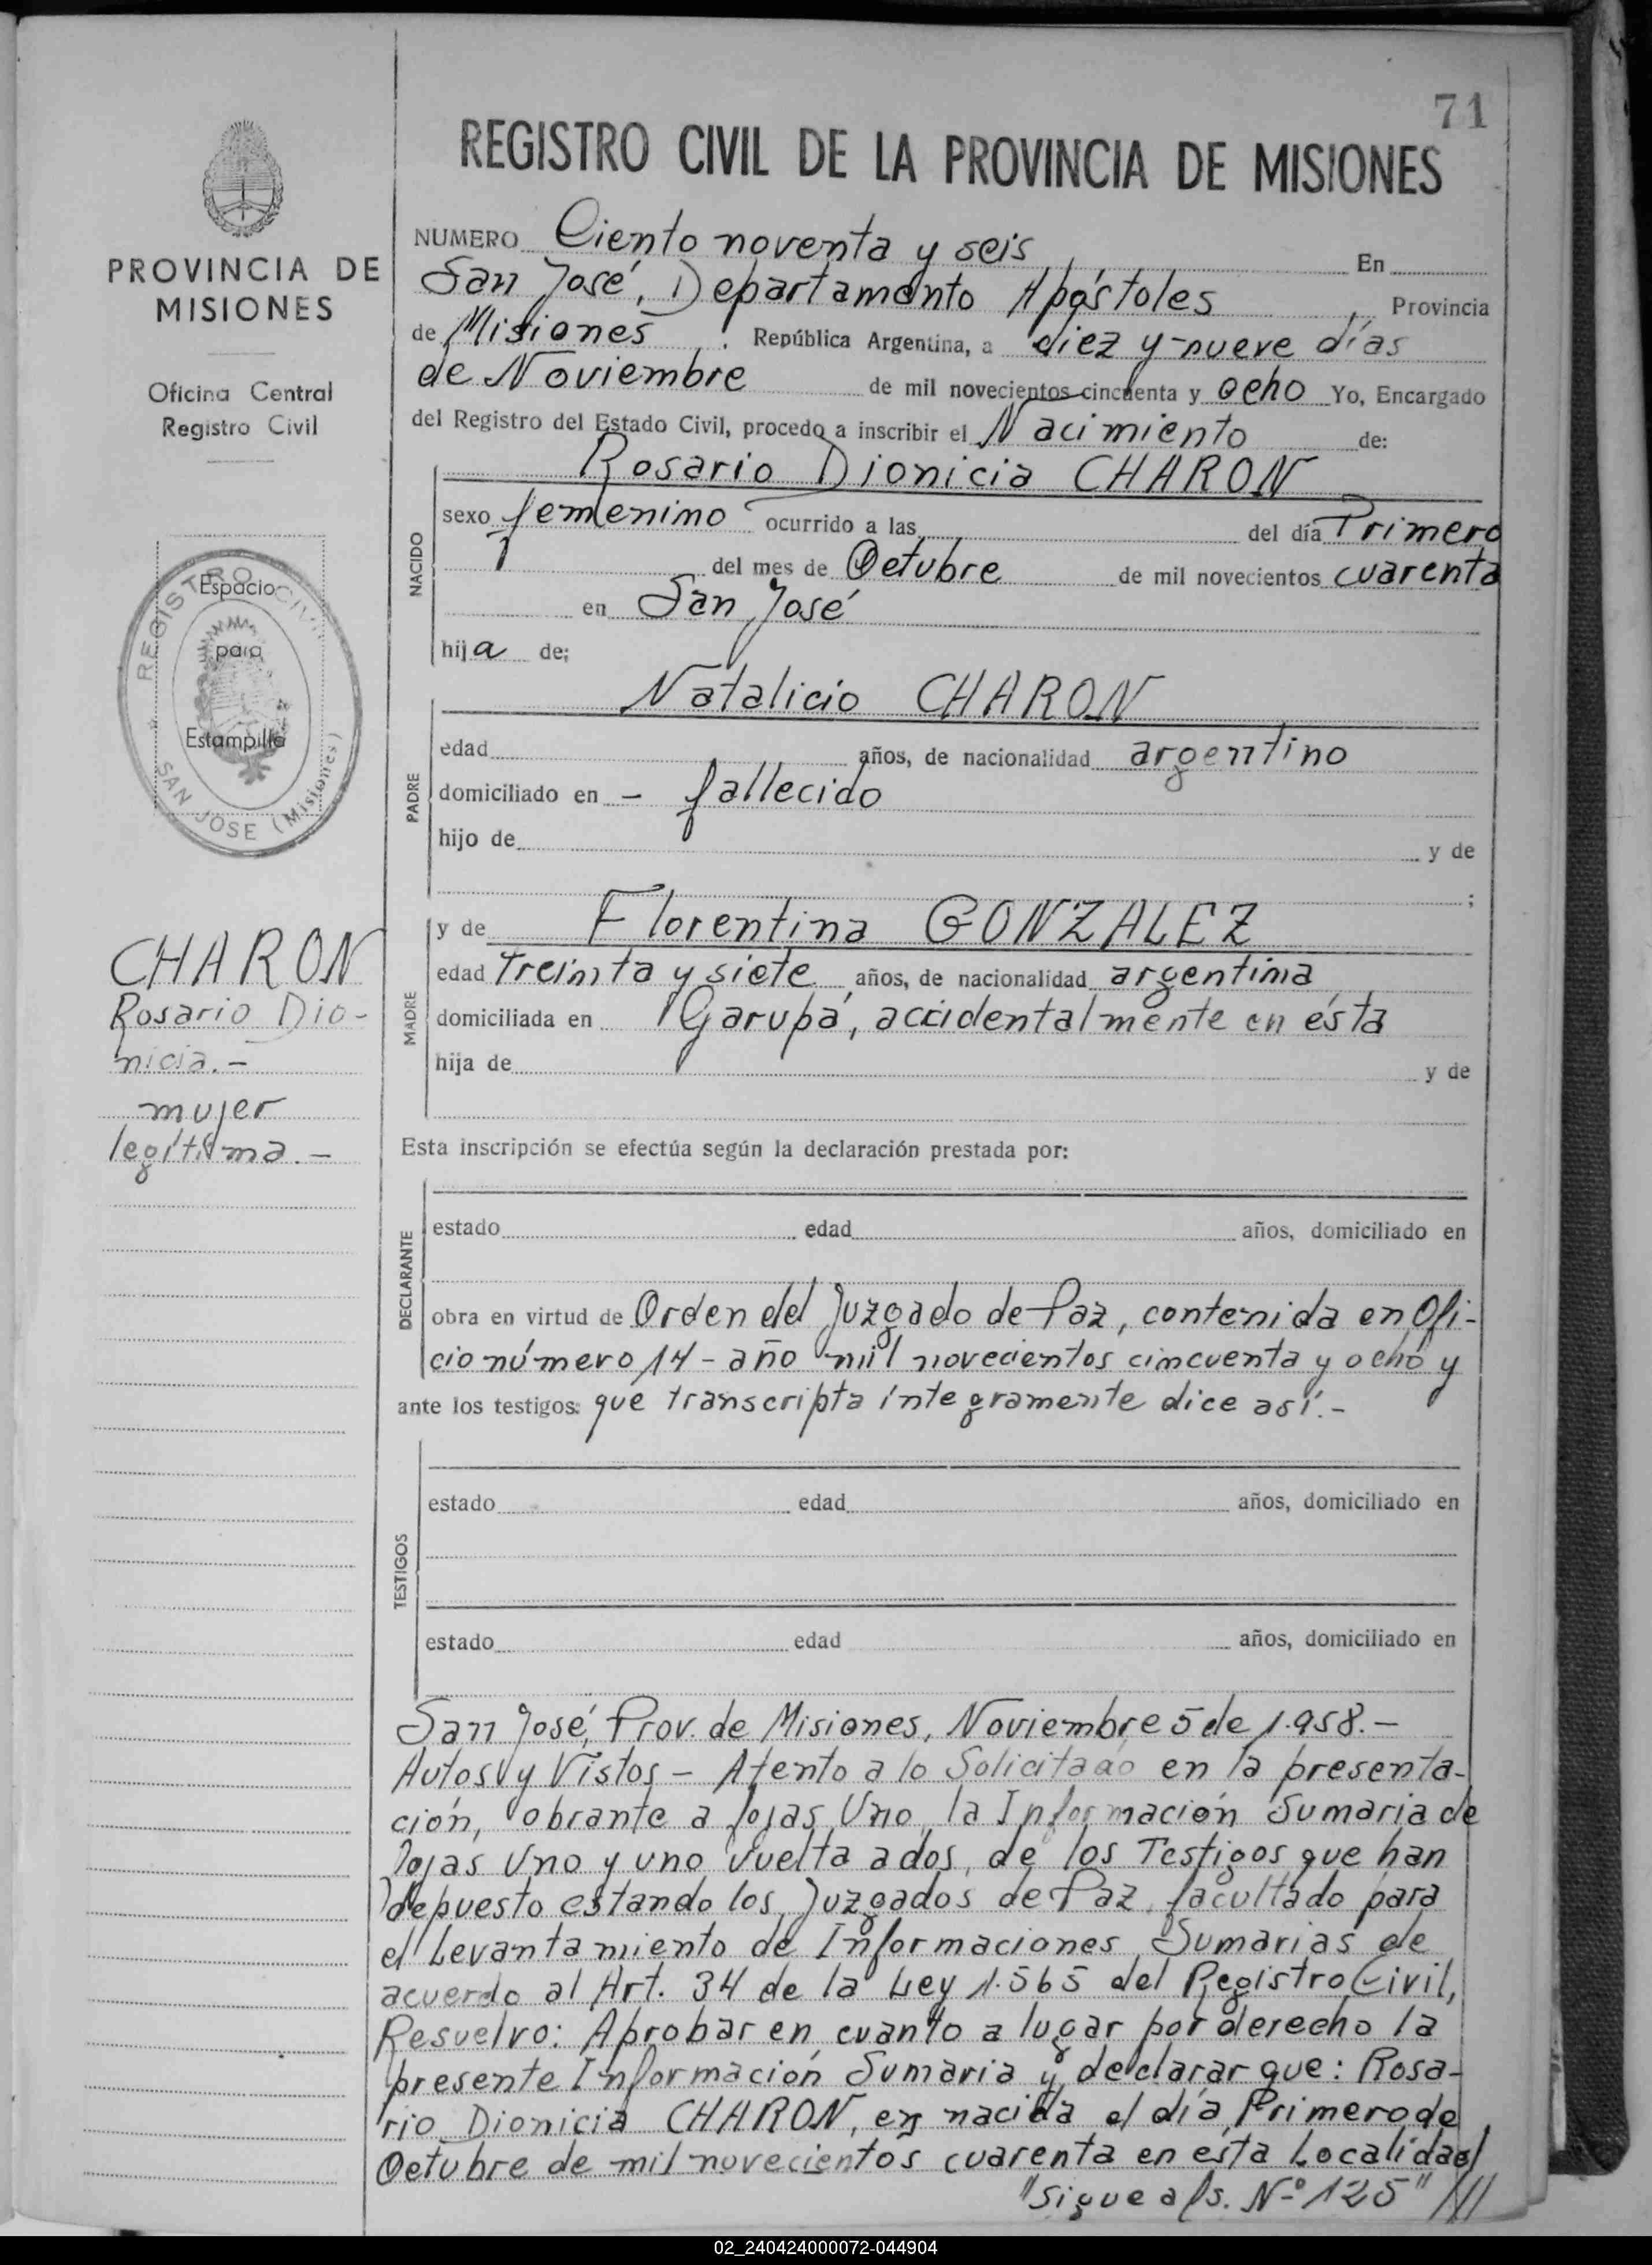 71
REGISTRO CIVIL DE LA PROVINCIA DE MISIONES
PROVINCIA DE
MISIONES
Oficina Central
Registro Civil
REGISTRO CIVIL
Espacio
para
Estampilla
SAN JOSE (Misiones)
CHARON
Rosario Dio-
nicia.-
mujer
legítima.-
NUMERO Ciento noventa y seis En
San José, Departamento Apóstoles, Provincia
de Misiones, República Argentina, a diez y nueve días
de Noviembre de mil novecientos cincuenta y ocho Yo, Encargado
del Registro del Estado Civil, procedo a inscribir el Nacimiento de:
NACIDO
Rosario Dionicia CHARON
sexo femenino ocurrido a las del día Primero
del mes de Octubre de mil novecientos cuarenta
en San José
hija de;
PADRE
Natalicio CHARON
edad años, de nacionalidad argentino
domiciliado en - fallecido
hijo de y de
;
MADRE
y de Florentina GONZALEZ
edad Treinta y siete años, de nacionalidad argentina
domiciliada en Garupá, accidentalmente en ésta
hija de y de
Esta inscripción se efectúa según la declaración prestada por:
DECLARANTE
estado edad años, domiciliado en
obra en virtud de Orden del Juzgado de Paz, contenida en Ofi-
cio número 14 - año mil novecientos cincuenta y ocho y
ante los testigos: que transcripta íntegramente dice así.-
TESTIGOS
estado edad años, domiciliado en
estado edad años, domiciliado en
San José, Prov. de Misiones, Noviembre 5 de 1.958.-
Autos y Vistos - Atento a lo Solicitado en la presenta-
ción, obrante a fojas Uno, la Información Sumaria de
fojas Uno y uno vuelta a dos, de los Testigos que han
depuesto estando los Juzgados de Paz, facultado para
el Levantamiento de Informaciones Sumarias de
acuerdo al Art. 34 de la Ley 1.565 del Registro Civil,
Resuelvo: Aprobar en cuanto a lugar por derecho la
presente Información Sumaria y declarar que: Rosa-
rio Dionicia CHARON, es nacida el día Primero de
Octubre de mil novecientos cuarenta en esta Localidad
"Sigue a fs. Nº 125" ///
02_240424000072-044904